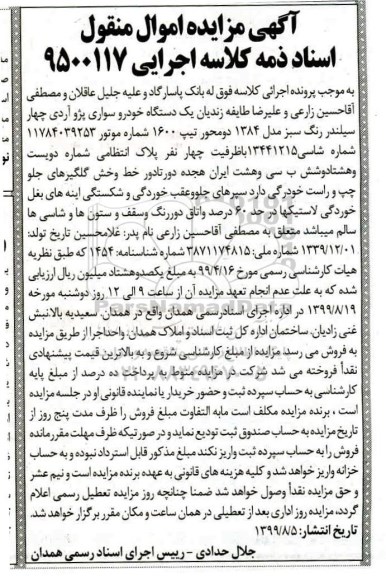 آگهی مزایده اموال منقول
اسناد ذمه کلاسه اجرایی ۹۵۰۰۱۱۷
به موجب پرونده اجرائی کلاسه فوق له بانک پاسارگاد و علیه جلیل عاقلان و مصطفی
آقاحسین زارعی و علیرضا طایفه زندیان یک دستگاه خودرو سواری پژو آردی چهار
سیلندر رنگ سبز مدل ۱۳۸۴ دومحور تیپ ۱۶۰۰ شماره موتور ۱۱۷۸۴۰۳۹۲۵۳
شماره شاسی ۱۳۴۴۱۲۱۵ باظرفیت چهار نفر پلاک انتظامی شماره دویست
وهشتادوشش ب سی وهشت ایران هجده دورتادور خط وخش گلگیرهای جلو
چپ و راست خوردگی دارد سپرهای جلووعقب خوردگی و شکستگی اینه های بغل
خوردگی لاستیکها در حد ۶۰ درصد واتاق دوررنگ وسقف و ستون ها و شاسی ها
سالم میباشد متعلق به مصطفی آقاحسین زارعی نام پدر: غلامحسین تاریخ تولد:
۱۳۳۹/۱۲/۰۱ شماره ملی: ۳۸۷۱۱۷۴۸۱۵ شماره شناسنامه: ۱۴۵۴ که طبق نظریه
هیات کارشناسی رسمی مورخ ۹۹/۴/۱۶ به مبلغ یکصدوهشتاد میلیون ریال ارزیابی
شده که به علت عدم انجام تعهد مزایده آن از ساعت ۹ الی ۱۲ روز دوشنبه مورخه
۱۳۹۹/۸/۱۹ در اداره اجرای اسناد رسمی همدان واقع در همدان. سعیدیه بالانبش
غنی زادیان. ساختمان اداره کل ثبت اسناد و املاک همدان. واحداجرا از طریق مزایده
به فروش می رسد. مزایده از مبلغ کارشناسی شروع و به بالاترین قیمت پیشنهادی
نقداً فروخته می شد شرکت در مزایده منوط به پرداخت ده درصد از مبلغ پایه
کارشناسی به حساب سپرده ثبت و حضور خریدار یا نماینده قانونی او در جلسه مزایده
است ، برنده مزایده مکلف است مابه التفاوت مبلغ فروش را ظرف مدت پنج روز از
تاریخ مزایده به حساب صندوق ثبت تودیع نماید و در صورتیکه ظرف مهلت مقرر مانده
فروش را به حساب سپرده ثبت واریز نکند مبلغ مذکور قابل استرداد نبوده و به حساب
خزانه واریز خواهد شد و کلیه هزینه های قانونی به عهده برنده مزایده است و نیم عشر
و حق مزایده نقداً وصول خواهد شد ضمنا چنانچه روز مزایده تعطیل رسمی اعلام
گردد، مزایده روز اداری بعد از تعطیلی در همان ساعت و مکان مقرر برگزار خواهد شد.
تاریخ انتشار: ۱۳۹۹/۸/۵
جلال حدادی - رییس اجرای اسناد رسمی همدان